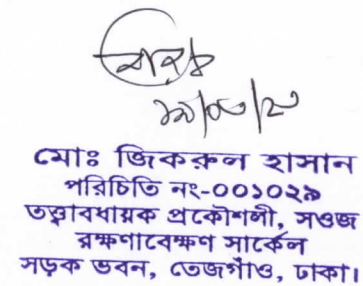 মোঃ জিকরুল হাসান
পরিচিতি নং-০০১০২৯
তত্ত্বাবধায়ক প্রকৌশলী, সওজ
রক্ষণাবেক্ষণ সার্কেল
সড়ক ভবন, তেজগাঁও, ঢাকা।